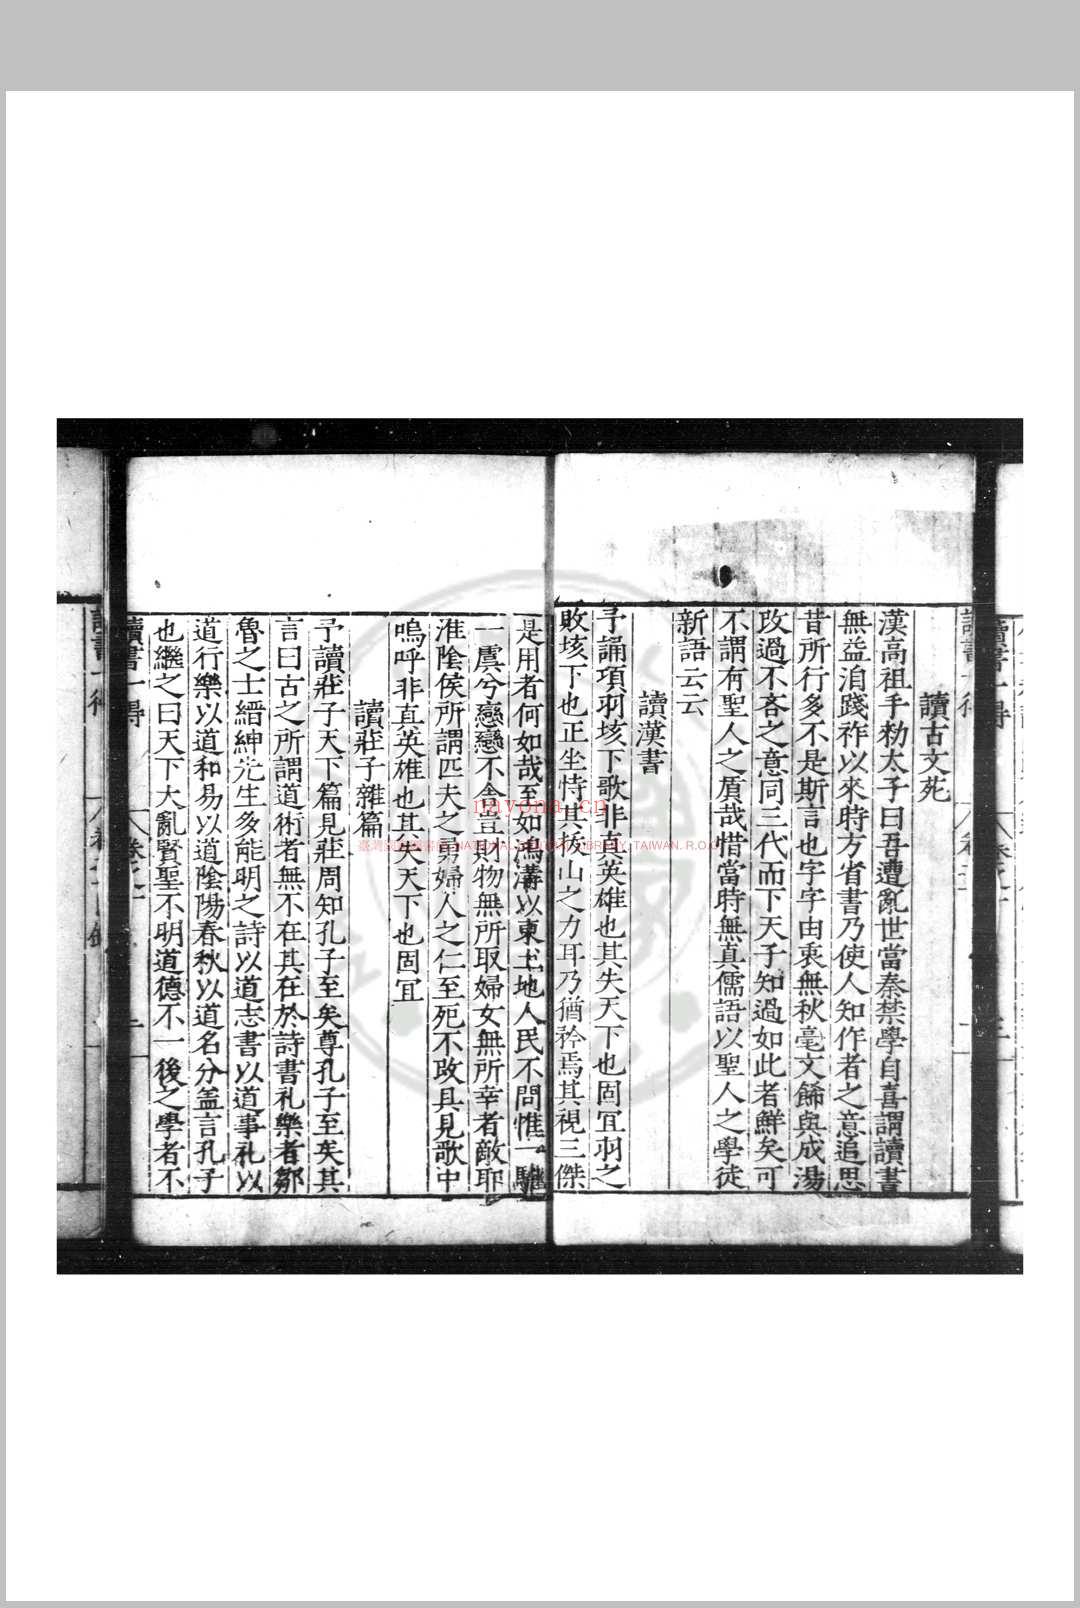 讀古文苑
漢高祖手勑太子曰吾遭亂世當秦禁學自喜謂讀書
無益洎踐祚以來時方省書乃使人知作者之意追思
昔所行多不是斯言也字字由衷無秋毫文餙與成湯
改過不吝之意同三代而下天子知過如此者鮮矣可
不謂有聖人之質哉惜當時無真儒語以聖人之學徒
新語云云
讀漢書
予誦項羽垓下歌非真英雄也其失天下也固宜羽之
敗垓下也正坐恃其拔山之力耳乃猶矜焉其視三傑
是用者何如哉至如鴻溝以東土地人民不問惟一騅
一虞兮戀戀不舍豈財物無所取婦女無所幸者敵耶
淮陰侯所謂匹夫之勇婦人之仁至死不改具見歌中
嗚呼非真英雄也其失天下也固宜
讀莊子雜篇
予讀莊子天下篇見莊周知孔子至矣尊孔子至矣其
言曰古之所謂道術者無不在其在於詩書礼樂者鄒
魯之士縉紳先生多能明之詩以道志書以道事礼以
道行樂以道和易以道陰陽春秋以道名分盖言孔子
也繼之曰天下大亂賢聖不明道德不一後之學者不
讀書一得
卷之
nayona.cn
NATIONAL CENTRAL LIBRARY, TAIWAN, R.O.C